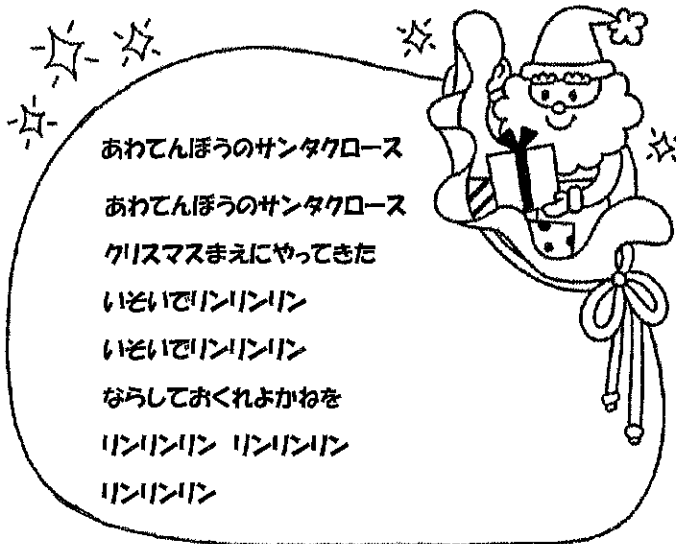 あわてんぼうのサンタクロース
あわてんぼうのサンタクロース
クリスマスまえにやってきた
いそいでリンリンリン
いそいでリンリンリン
ならしておくれよかねを
リンリンリン リンリンリン
リンリンリン